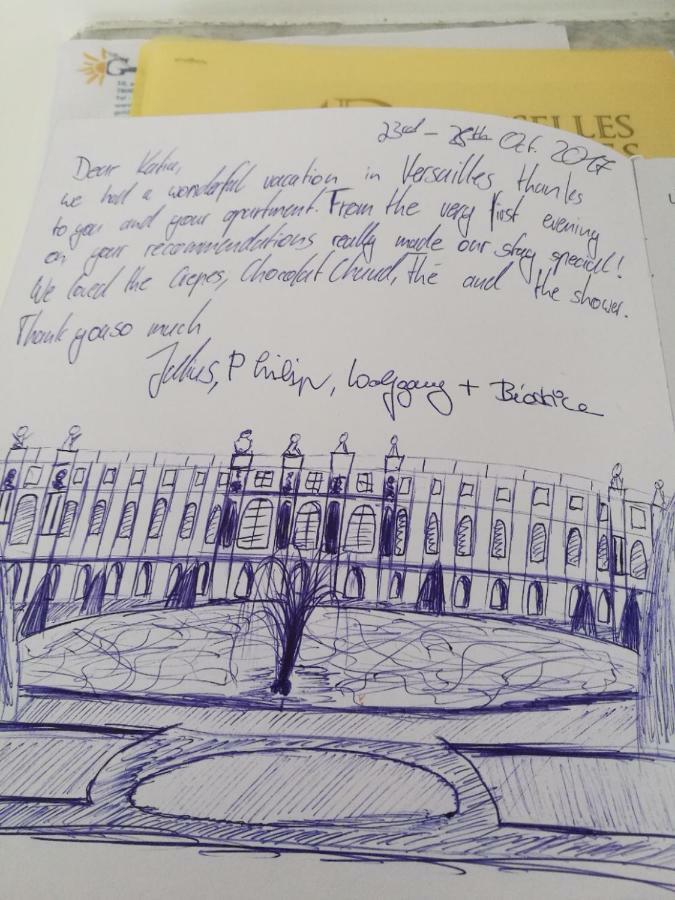 SELLES
23rd - 28th Oct. 2017
Dear Katia,
we had a wonderful vacation in Versailles thanks
to you and your apartment. From the very first evening
on your recommendations really made our stay special!
We loved the Crepes, Chocolat Chaud, thé and the shower.
Thank you so much
Julius, Philip, Wolfgang + Béatrice